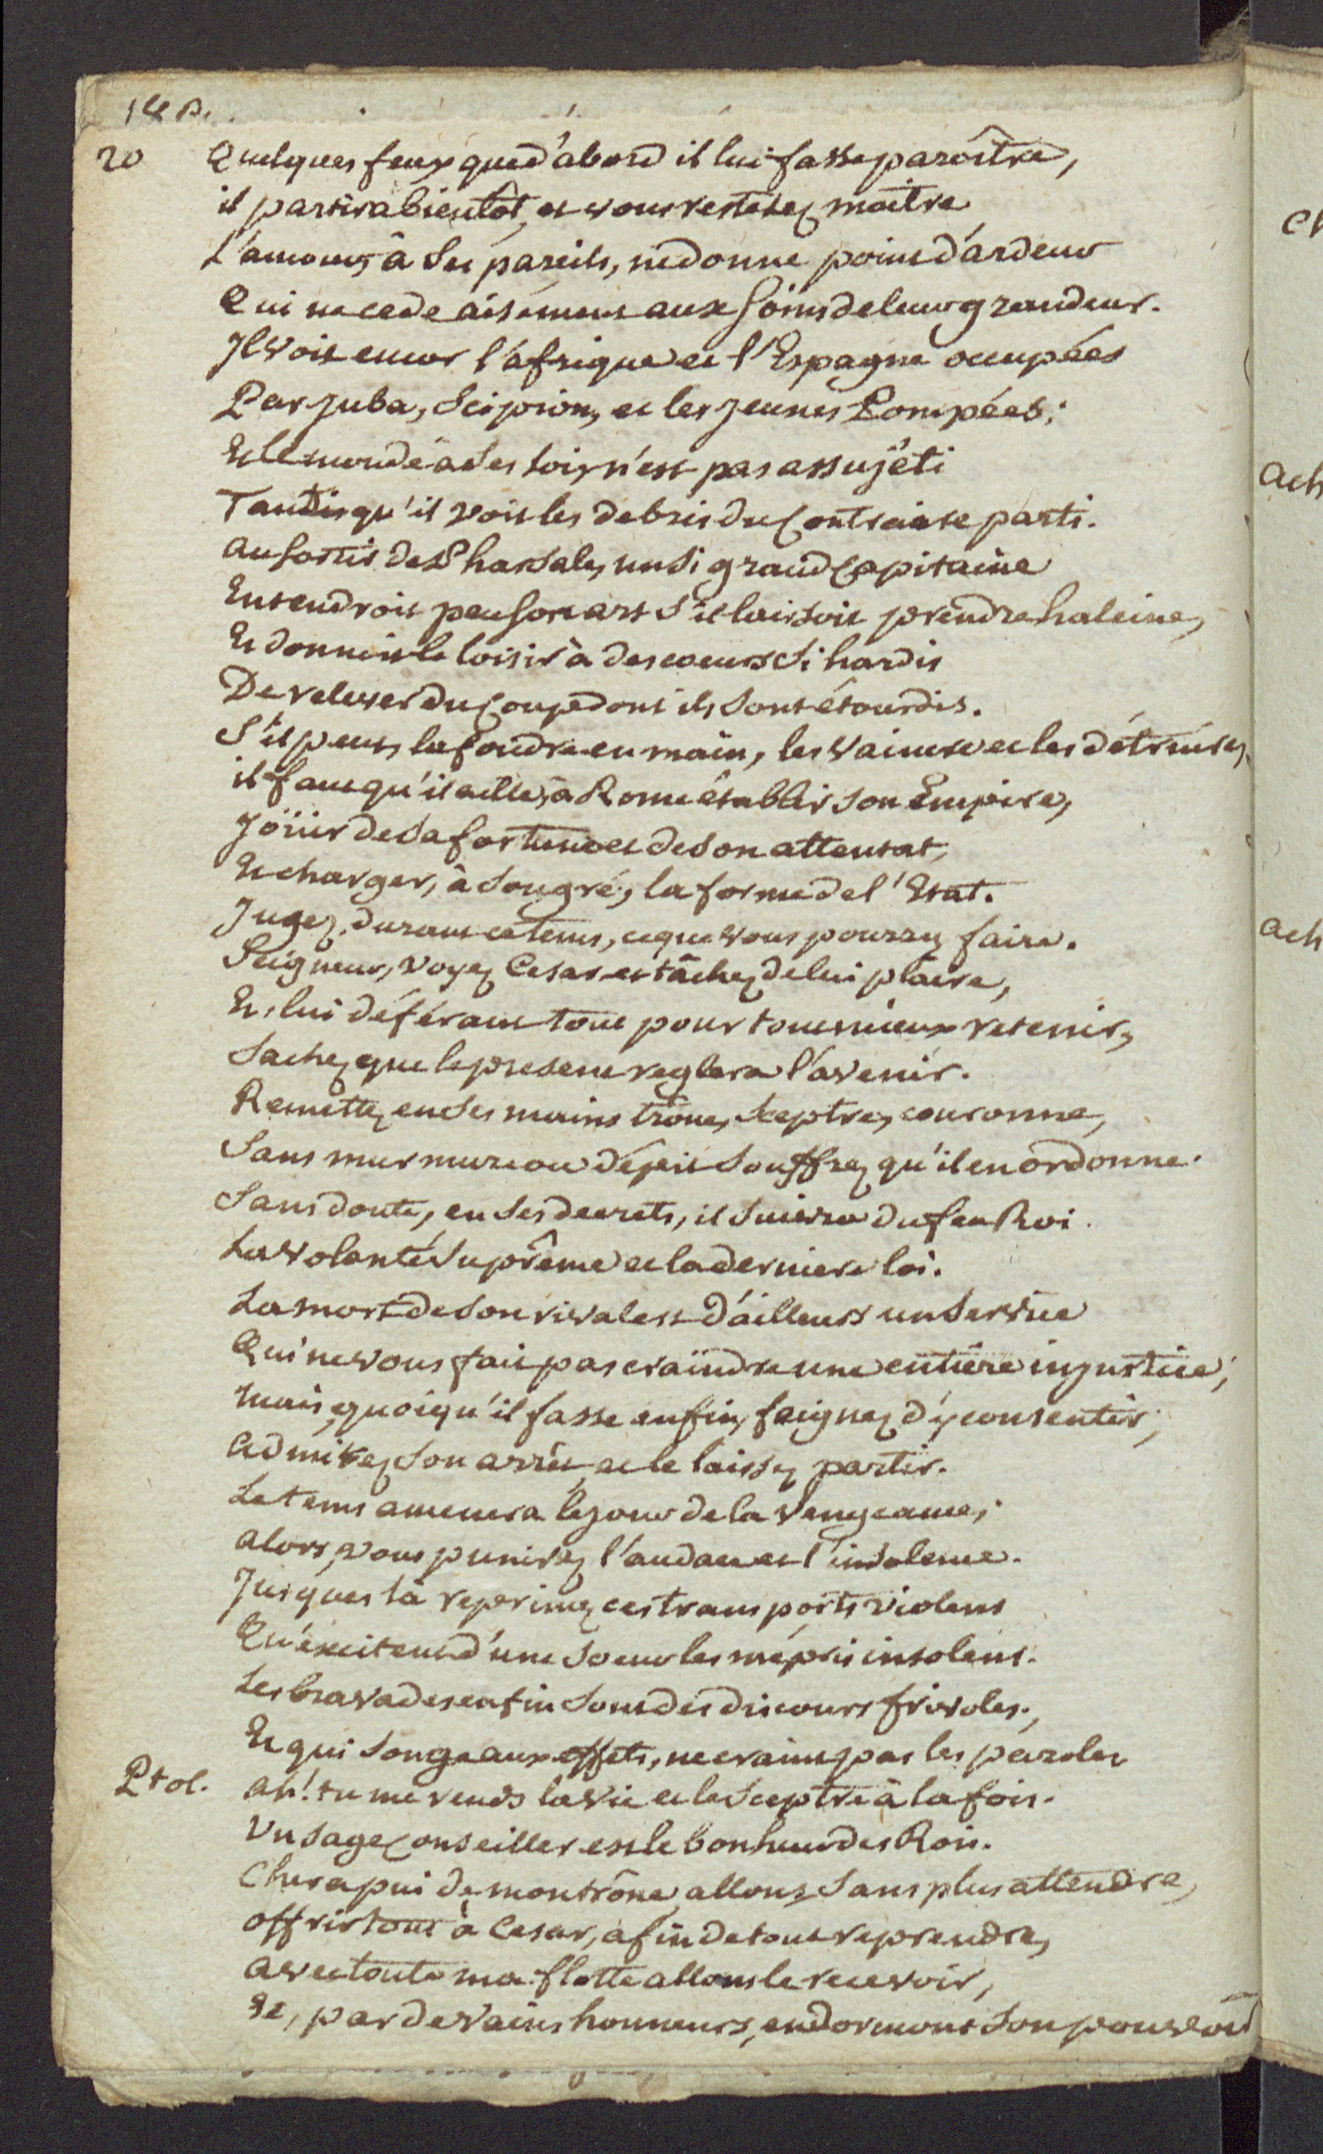 20
Quelques feux que d'abord il lui fasse paroître,
il partira bientôt, et vous resterez maître
L'amour, à ses pareils, ne donne point d'ardeur
Qui ne cede aisément aux soins de leur grandeur.
Il voit encor l'afrique et l'Espagne occupées
Par Juba, Scipion, et les jeunes Pompées;
Et le monde à ses loix n'est pas assujéti
Tandis qu'il voit les debris du contraire parti.
au sortir de Pharsale, un si grand Capitaine
Entendroit peu son art s'il laissoit prendre haleine,
Et donnoit le loisir à des coeurs si hardis
De relever du coup dont ils sont étourdis.
S'il peut, la foudre en main, les vaincre et les détruire,
il faut qu'il aille, à Rome établir son Empire,
Joüir de sa fortune et de son attentat,
Et changer, à son gré, la forme de l'Etat.
Jugez, durant ce tems, ce que vous pourrez faire.
Seigneur, voyez Cesar et tâchez de lui plaire,
Et, lui déférant tout pour tout mieux retenir,
Sachez que le present reglera l'avenir.
Remettez en ses mains trône, sceptre, couronne,
Sans murmure ou dépit souffrez qu'il en ordonne.
Sans doute, en ses decrets, il suivra du feu Roi
La volonté suprême et la derniere loi.
La mort de son rival est d'ailleurs un service
Qui ne vous fait pas craindre une entière injustice;
Mais, quoiqu'il fasse enfin, feignez d'y consentir;
admirez son arrêt, et le laissez partir.
Le tems amenera le jour de la vengeance;
alors, vous punirez l'audace et l'insolence.
Jusques là reprimez ces transports violens
Qu'excitent d'une soeur les mépris insolens.
Les bravades enfin sont des discours frivoles,
Et qui songe aux effets, ne craint pas les paroles
Ptol. ah! tu me rends la vie et le Sceptre à la fois.
Un sage Conseiller est le bonheur des Rois.
Cher apui de mon trône, allons, sans plus attendre,
offrir tout à Cesar, afin de tout reprendre,
avec toute ma flotte allons le recevoir,
Et, par de vains honneurs, endormons son pouvoir
Ach
Ach